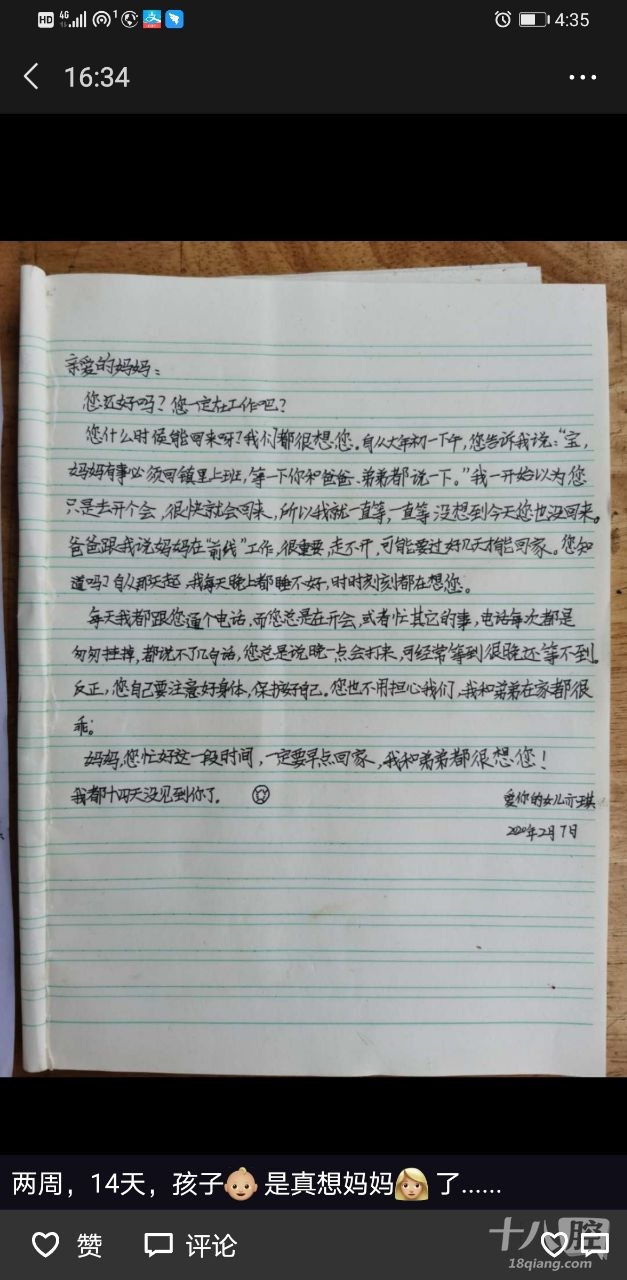 HD 4G 1 4:35
16:34
亲爱的妈妈：
您还好吗？您一定在工作吧？
您什么时候能回来呀？我们都很想您。自从大年初一下午，您告诉我说：“宝，
妈妈有事必须回镇里上班，等一下你和爸爸、弟弟都说一下。”我一开始以为您
只是去开个会，很快就会回来，所以我就一直等，一直等没想到今天您也没回来。
爸爸跟我说妈妈在“前线”工作，很重要，走不开，可能要过好几天才能回家。您知
道吗？自从那天起，我每天晚上都睡不好，时时刻刻都在想您。
每天我都跟您通个电话，而您总是在开会，或者忙其它的事，电话每次都是
匆匆挂掉，都说不了几句话，您总是说晚一点会打来，可经常等到很晚还等不到。
反正，您自己要注意好身体，保护好自己。您也不用担心我们，我和弟弟在家都很
乖。
妈妈，您忙好这一段时间，一定要早点回家，我和弟弟都很想您！
我都十四天没见到你了。
爱你的女儿亦琪
2020年2月7日
两周，14天，孩子👶🏼是真想妈妈👩🏼了......
赞 评论
十八腔
18qiang.com